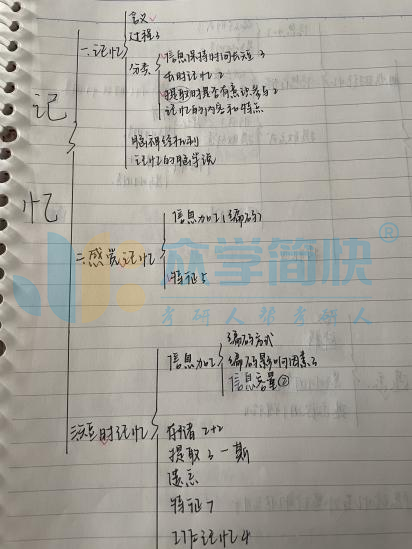 记忆
一、记忆
含义
过程3
分类
信息保持时间长短 3
长时记忆 2
提取时是否有意识参与 2
记忆的内容和特点
脑神经机制
记忆的脑学说
二、感觉记忆
信息加工(编码)
特征5
三、短时记忆
信息加工
编码方式
编码影响因素3
信息容量②
存储 2+2
提取 3-斯
遗忘
特征7
工作记忆4
众学简快®
考研人帮考研人